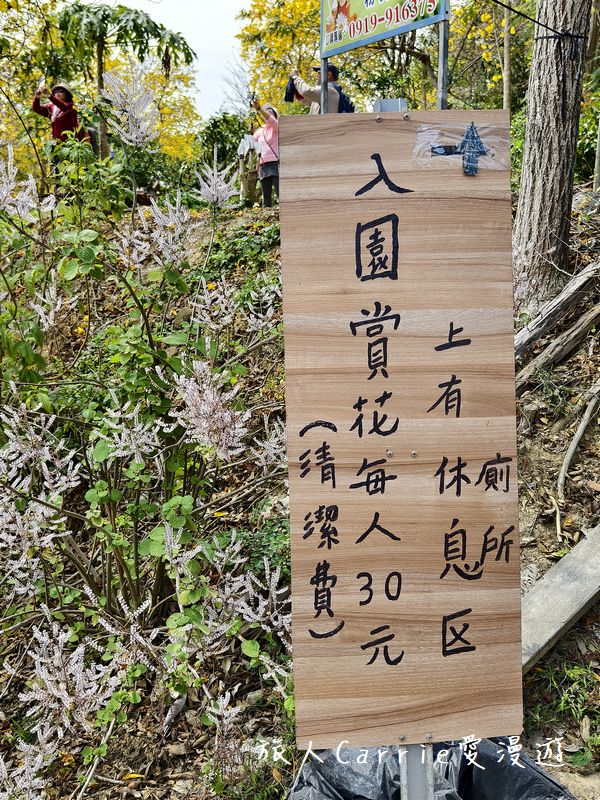 0919-916375
廁所
上有休息區
入園賞花每人30元
(清潔費)
旅人Carrie愛漫遊